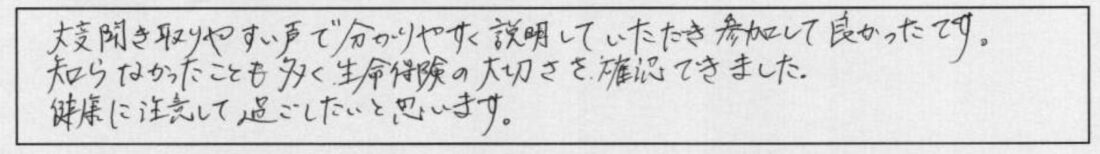 大変聞き取りやすい声で分かりやすく説明していただき参加して良かったです。
知らなかったことも多く生命保険の大切さを確認できました。
健康に注意して過ごしたいと思います。